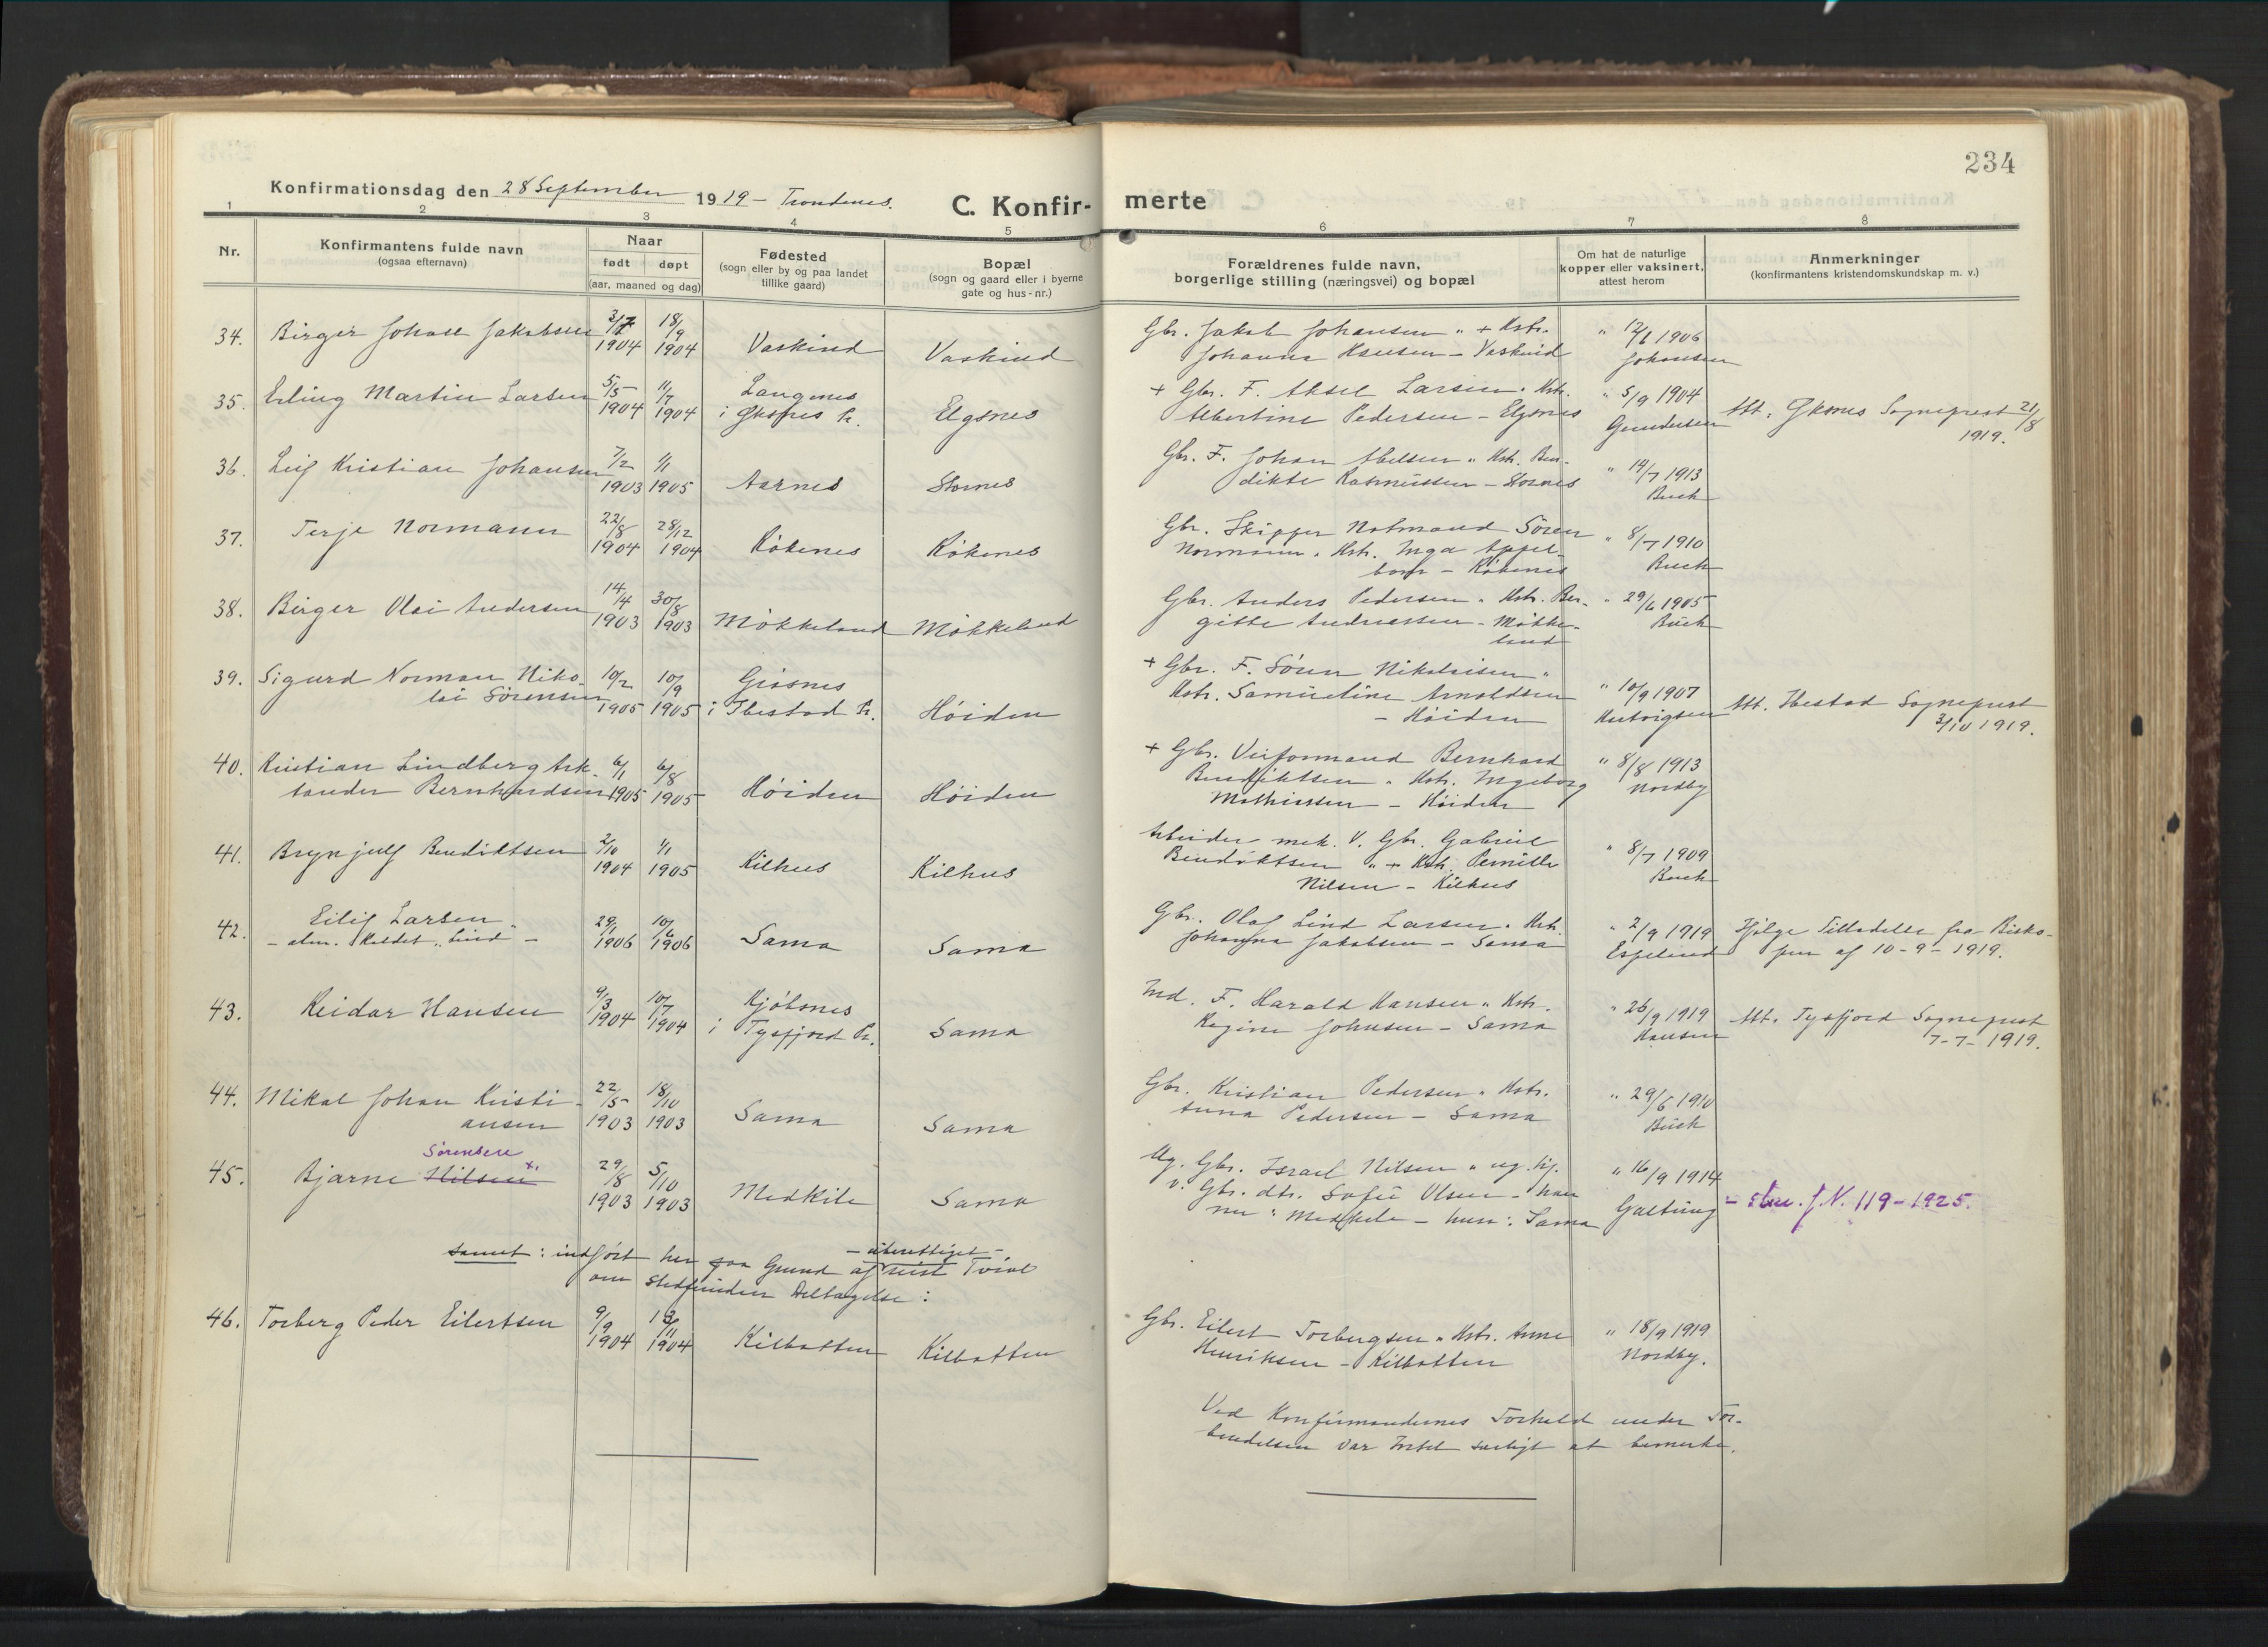 234
Konfirmationsdag den 28 September 1919 - Trondenes.
C. Konfir- merte
1 2 3 4 5 6 7 8
Nr.
Konfirmantens fulde navn
(ogsaa efternavn)
Naar
født døpt
(aar, maaned og dag)
Fødested
(sogn eller by og paa landet
tillike gaard)
Bopæl
(sogn og gaard eller i byerne
gate og hus-nr.)
Forældrenes fulde navn,
borgerlige stilling (næringsvei) og bopæl
Om hat de naturlige
kopper eller vaksinert,
attest herom
Anmerkninger
(konfirmantens kristendomskundskap m. v.)
34. Birger Johan Jakobsen 1904 18/9 1904 Vaskind Vaskind
Gbr. Jakob Johansen " + Hstr.
Johanna Hansen - Vaskind
" 1906
Johansen
35. Erling Martin Larsen 5/5 1904 11/7 1904
Langenes
i Øksnes Pr.
Elgsnes
+ Gbr. F. Aksel Larsen " Hstr.
Albertine Pedersen - Elgsnes
" 5/9 1904
Gundersen
Att. Øksnes Sogneprest 21/8
1919.
36. Leif Kristian Johansen 7/2 1903 1/1 1905 Aarnes Stornes
Gbr. F. Johan Abelsen " Hstr. Ben-
dikte Rasmussen - Stornes
" 14/7 1913
Buch
37. Terje Normann 22/8 1904 28/12 1904 Røkenes Røkenes
Gbr. Skipper Notmand Søren
Normann " Hstr. Inga Appel-
bom - Røkenes
" 8/7 1910
Buch
38. Birger Olai Andersen 14/4 1903 30/8 1903 Møkkeland Møkkeland
Gbr. Anders Pedersen " Hstr. Ber-
gitte Andreassen - Møkke-
land
" 29/6 1905
Buch
39. Sigurd Norman Niko-
lai Sørensen 10/2 1905 10/9 1905
Grøsnes
i Ibestad Pr.
Høiden
+ Gbr. F. Søren Nikolaisen "
Hstr. Samueline Arnoldsen
- Høiden
" 10/9 1907
Hutvigsen
Att. Ibestad Sogneprest
3/10 1919.
40. Kristian Lindberg Alek-
sander Bernhardsen 6/1 1905 6/8 1905 Høiden Høiden
+ Gbr. Veiformand Bernhard
Bendiktsen " Hstr. Ingeborg
Mathiassen - Høiden
" 8/8 1913
Nordby
41. Brynjulf Bendiktsen 2/10 1904 1/1 1905 Kilhus Kilhus
Arbeider mek. V. Gbr. Gabriel
Bendiktsen " + Hstr. Pernille
Nilsen - Kilhus
" 8/7 1909
Buch
42. Eilif Larsen
- alm. kaldet "Lind" - 29/1 1906 10/6 1906 Sama Sama
Gbr. Olaf Lind Larsen " Hstr.
Johanna Jakobsen - Sama
" 2/9 1919
Espelund
Ifølge Tilladelse fra Bisko-
pen af 10-9-1919.
43. Reidar Hansen 9/3 1904 10/7 1904
Kjøbsnes
i Tysfjord Pr.
Sama
Ind. F. Harald Hansen " Hstr.
Regine Johnsen - Sama
" 26/9 1919
Hansen
Att. Tysfjord Sogneprest
7-7-1919.
44. Mikal Johan Kristi-
ansen 22/5 1903 18/10 1903 Sama Sama
Gbr. Kristian Pedersen " Hstr.
Anna Pedersen - Sama
" 29/6 1910
Buch
Sørensen
45. Bjarne Nilsen x. 29/8 1903 5/10 1903 Medkile Sama
Ug. Gbr. Israel Nilsen " ug. hj.
v. Gbr. dtr. Sofie Olsen - han
nu: Medkile - hun: Sama
" 16/9 1914
Galtung
- J.N. 119-1925.
samt: indført her paa Grund af - uberettiget - reist Tvivl
om stedfunden Deltagelse:
46. Torberg Peder Eilertsen 9/9 1904 13/11 1904 Kilbotten Kilbotten
Gbr. Eilert Torbergsen " Hstr. Anne
Henriksen - Kilbotten
" 18/9 1919
Nordby.
Ved Konfirmandernes Forhold under For-
beredelsen var Intet særligt at bemerke.